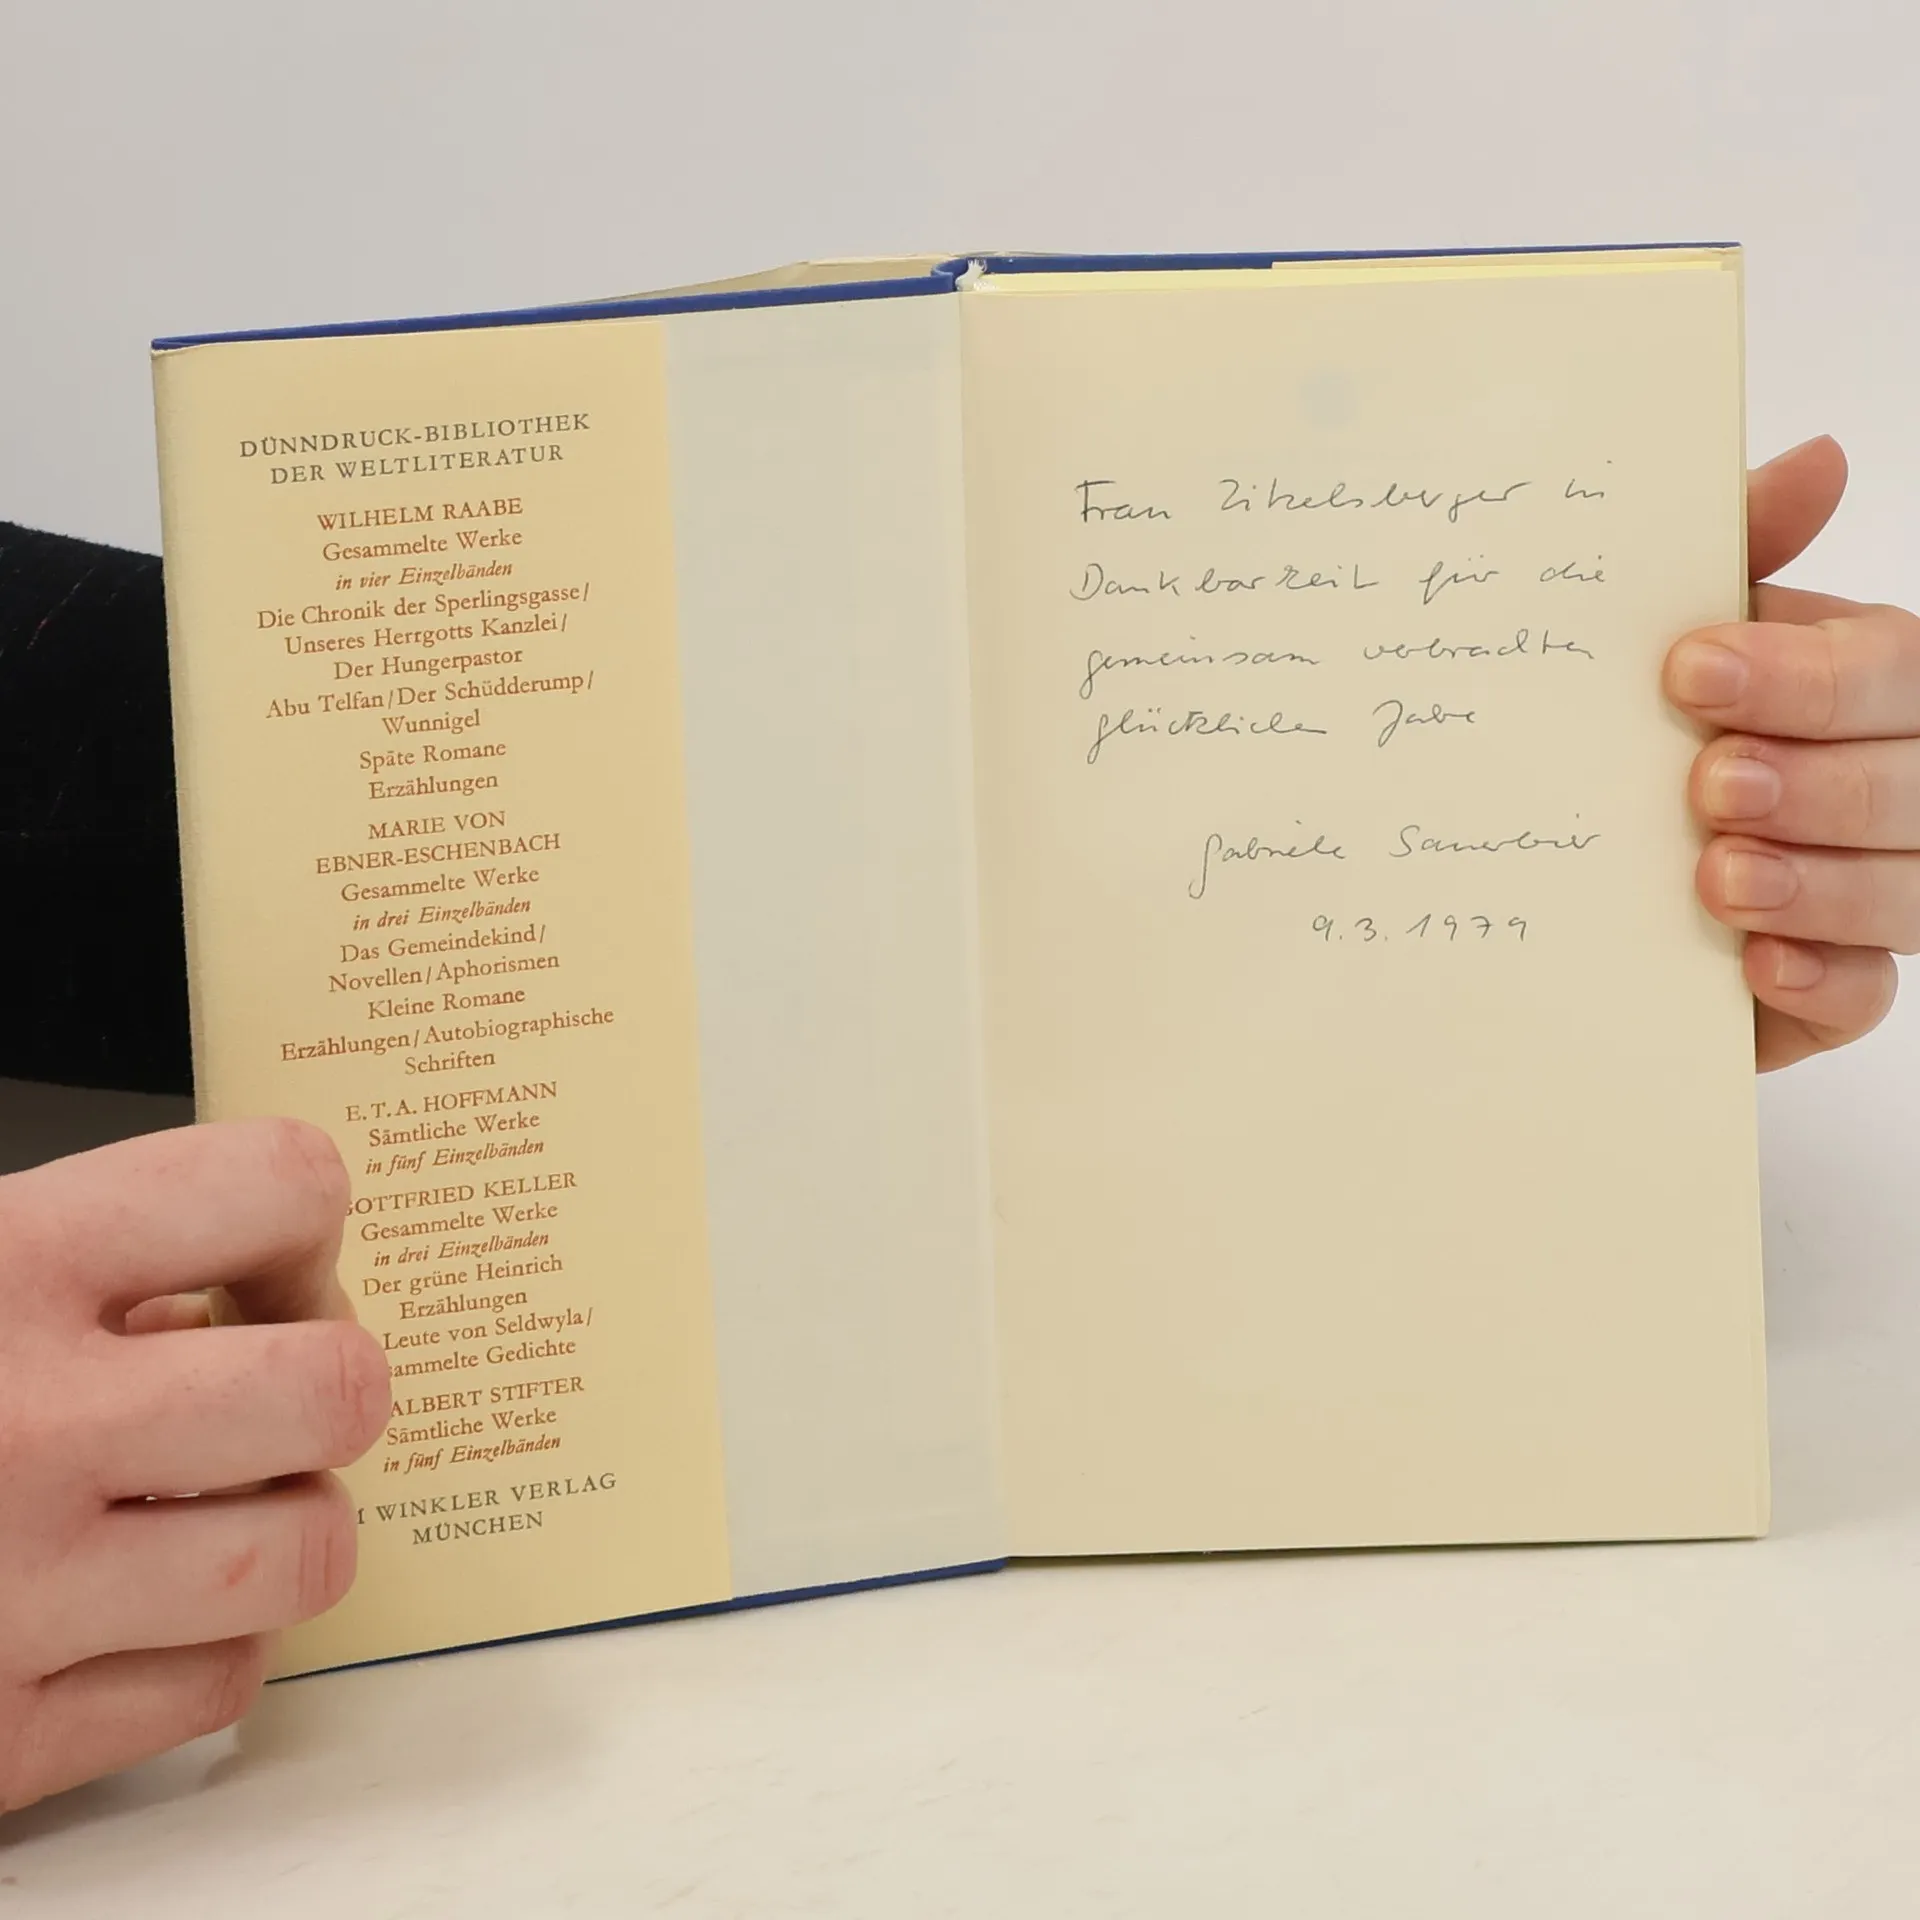 DÜNNDRUCK-BIBLIOTHEK
DER WELTLITERATUR
WILHELM RAABE
Gesammelte Werke
in vier Einzelbänden
Die Chronik der Sperlingsgasse/
Unseres Herrgotts Kanzlei/
Der Hungerpastor
Abu Telfan/Der Schüdderump/
Wunnigel
Späte Romane
Erzählungen
MARIE VON
EBNER-ESCHENBACH
Gesammelte Werke
in drei Einzelbänden
Das Gemeindekind/
Novellen/Aphorismen
Kleine Romane
Erzählungen/Autobiographische
Schriften
E.T.A. HOFFMANN
Sämtliche Werke
in fünf Einzelbänden
GOTTFRIED KELLER
Gesammelte Werke
in drei Einzelbänden
Der grüne Heinrich
Erzählungen
Leute von Seldwyla/
sammelte Gedichte
ALBERT STIFTER
Sämtliche Werke
in fünf Einzelbänden
WINKLER VERLAG
MÜNCHEN
Frau Zitzelsberger in
Dankbarkeit für die
gemeinsam verbrachten
glücklichen Jahre
Gabriele Sauerbier
9.3.1979